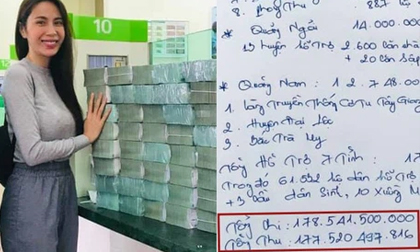 10
* Quảng Ngãi 14.000.000
13 huyện hỗ trợ 2.600 căn nhà
+ 20 căn sập
* Quảng Nam: 12.748.000
1. Làng Truyền Thống Cơ Tu Tây Giang
2. Huyện Đại Lộc
3. Bắc Trà My
Tổng Hỗ Trợ 7 Tỉnh: 17
Trong đó 61.532 hộ dân hỗ trợ
+3 dân sinh, 10 xuồng M
Tổng chi: 178.541.500.000
Tổng Thu 177.520.497.816